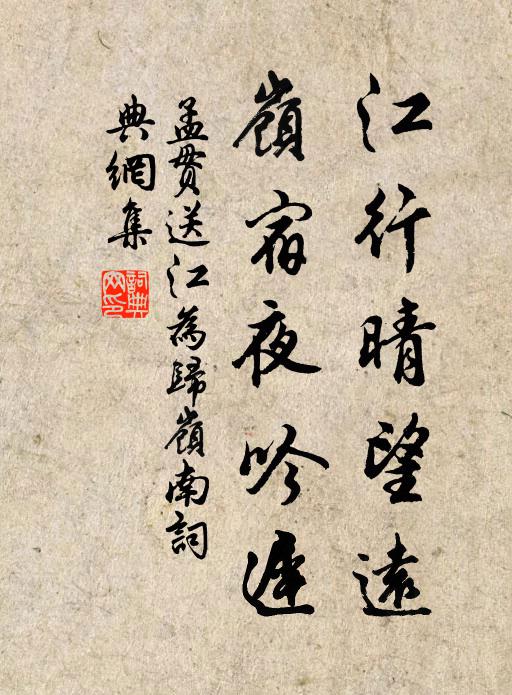 江行晴望遠
嶺宿夜吟遲
孟貫送江為歸嶺南詞
典網集
詞典網印